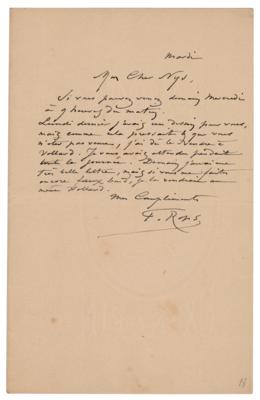 Mardi
Mon Cher Nys,
Si vous pouvez venez demain Mercredi
à 9 heures du matin.
Lundi dernier j'avais un dessin pour vous,
mais comme cela pressait & que vous
n'êtes pas venu, j'ai dû le vendre à
Vollard. Je vous avais attendu pendant
toute la journée. Demain j'aurai une
très belle lettre, mais si vous me faites
encore faux bond, je la vendrai au
même Vollard.
Mes Compliments
F. Rops